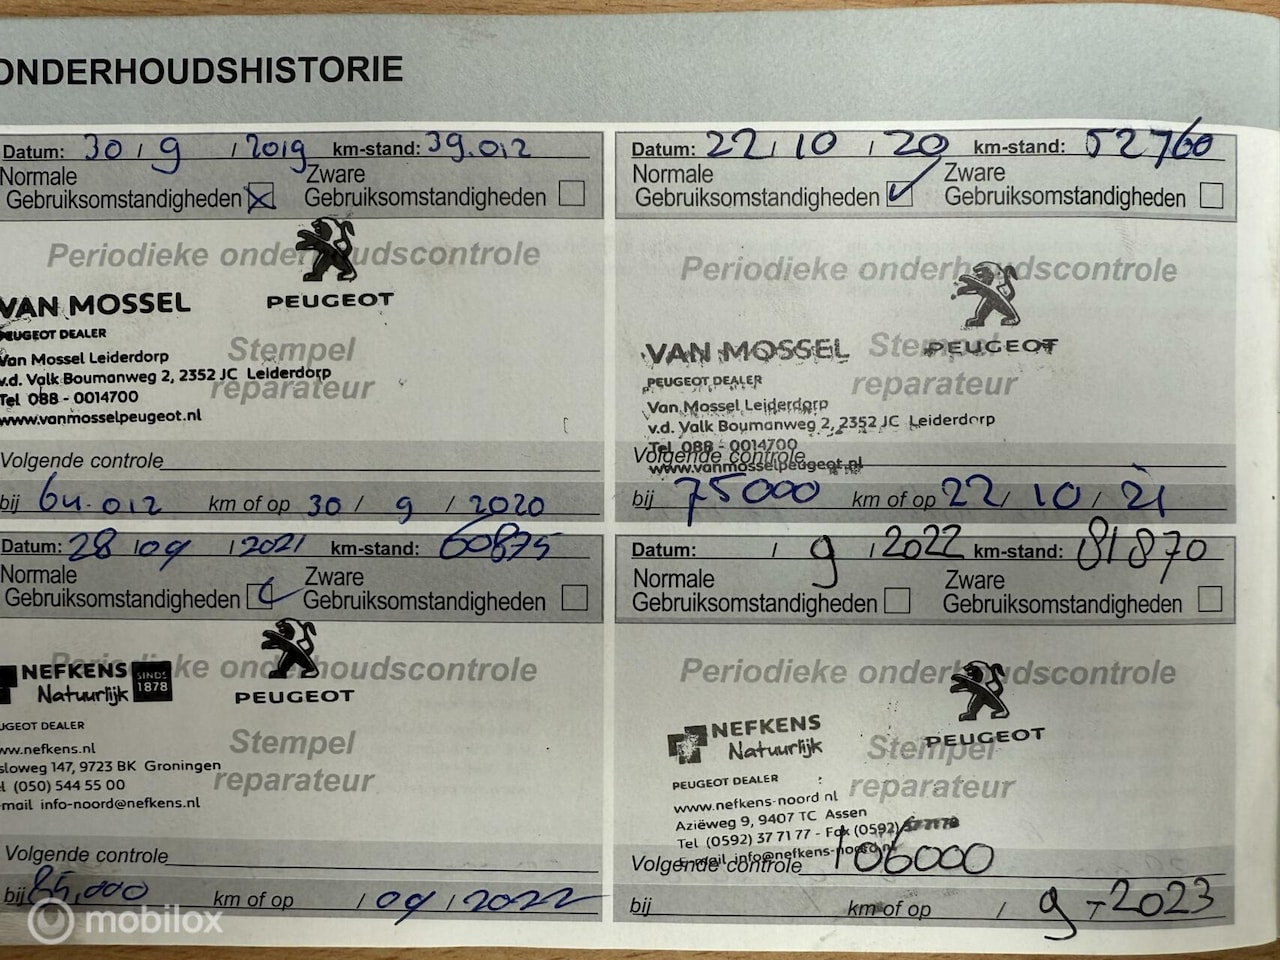 ONDERHOUDSHISTORIE
Datum: 30 / 9 / 2019 km-stand: 39.012
Normale
Gebruiksomstandigheden
Zware
Gebruiksomstandigheden
Periodieke onderhoudscontrole
PEUGEOT
VAN MOSSEL
PEUGEOT DEALER
Stempel
reparateur
Van Mossel Leiderdorp
v.d. Valk Boumanweg 2, 2352 JC Leiderdorp
Tel 088 - 0014700
www.vanmosselpeugeot.nl
Volgende controle
bij 64.012 km of op 30 / 9 / 2020
Datum: 22 / 10 / 20 km-stand: 52760
Normale
Gebruiksomstandigheden
Zware
Gebruiksomstandigheden
Periodieke onderhoudscontrole
PEUGEOT
VAN MOSSEL
PEUGEOT DEALER
Stempel
reparateur
Van Mossel Leiderdorp
v.d. Valk Boumanweg 2, 2352 JC Leiderdorp
Tel 088 - 0014700
www.vanmosselpeugeot.nl
Volgende controle
bij 75000 km of op 22 / 10 / 21
Datum: 28 / 09 / 2021 km-stand: 60875
Normale
Gebruiksomstandigheden
Zware
Gebruiksomstandigheden
Periodieke onderhoudscontrole
NEFKENS
Natuurlijk
SINDS
1878
PEUGEOT
UGEOT DEALER
Stempel
reparateur
ww.nefkens.nl
sloweg 147, 9723 BK Groningen
l (050) 544 55 00
-mail info-noord@nefkens.nl
Volgende controle
bij 85,000 km of op / 09 / 2022
Datum: / 9 / 2022 km-stand: 81870
Normale
Gebruiksomstandigheden
Zware
Gebruiksomstandigheden
Periodieke onderhoudscontrole
NEFKENS
Natuurlijk
PEUGEOT
PEUGEOT DEALER
Stempel
reparateur
www.nefkens-noord nl
Aziëweg 9, 9407 TC Assen
Tel (0592) 37 71 77 - Fax (0592)
E-mail info@nefkens-noord.nl
Volgende controle 106000
bij km of op / 9 - 2023
mobilox